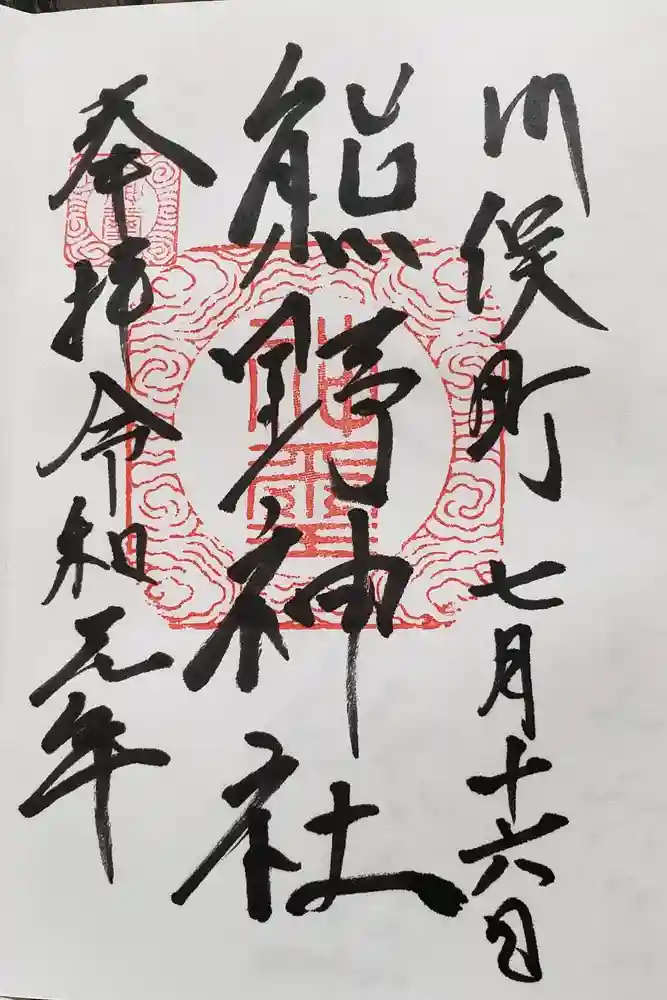 川俣町 七月十六日
熊野神社
奉拝 令和元年
神璽